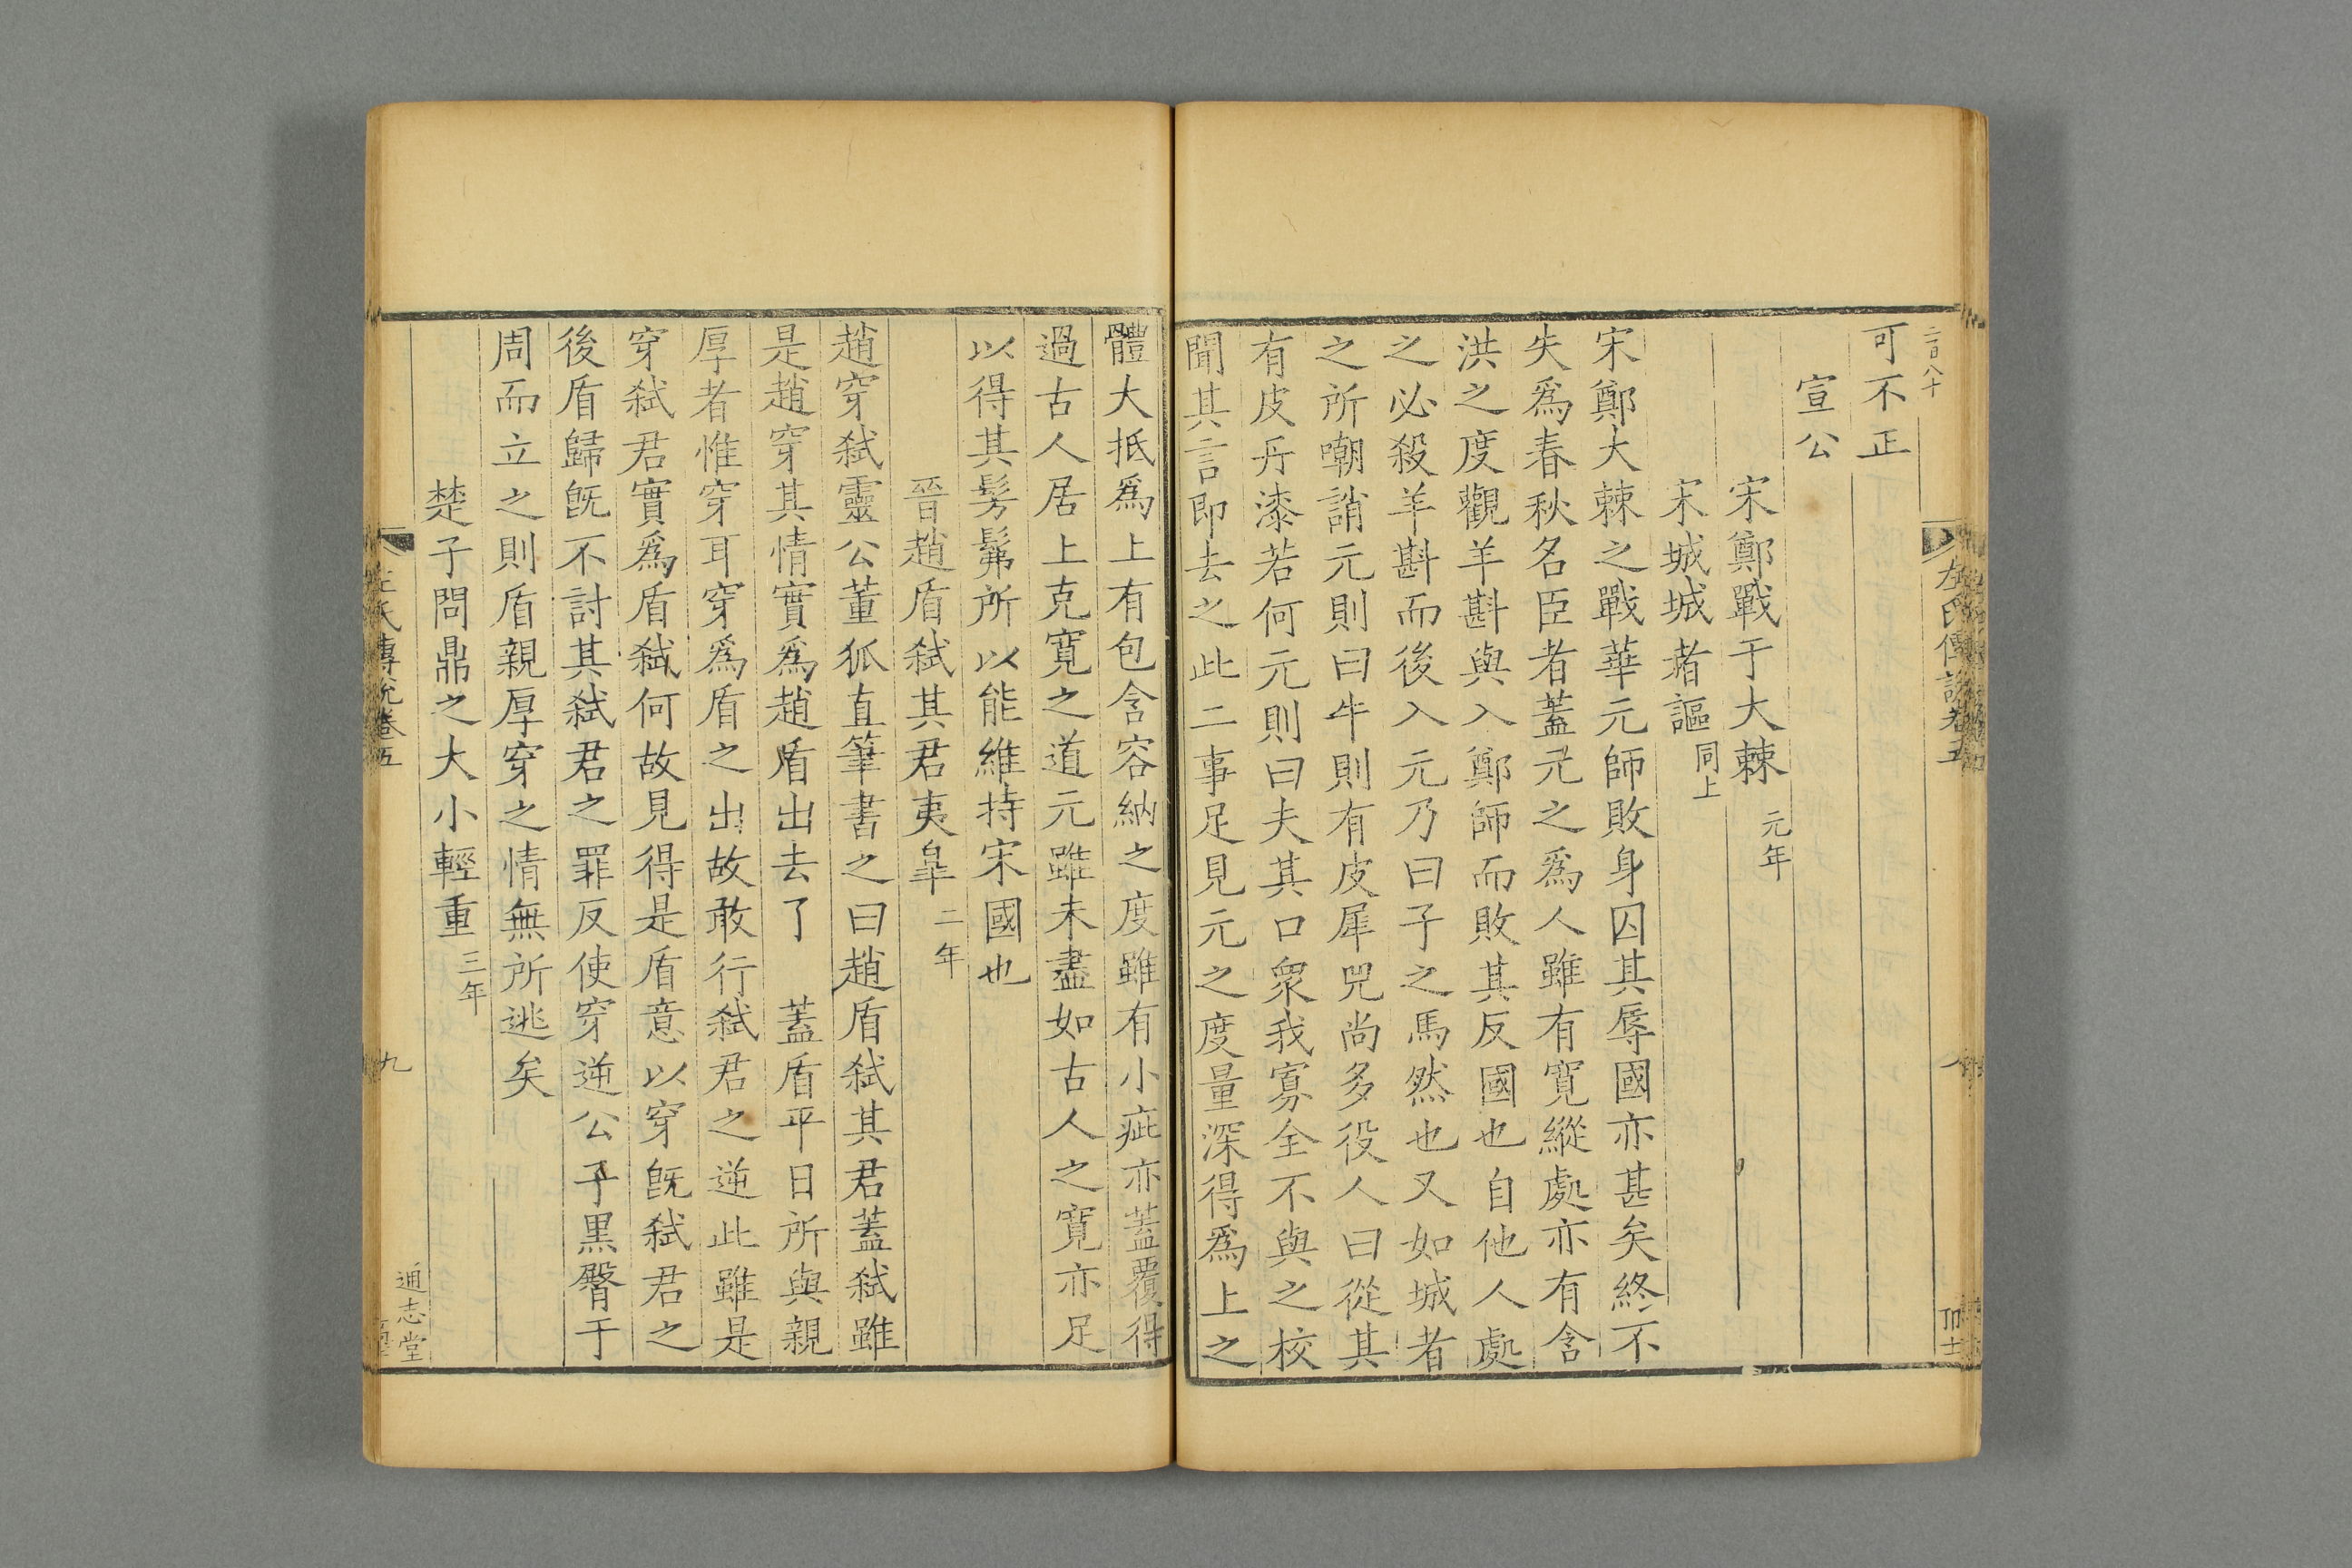 二百八十
左氏傳說卷五
八
可不正
宣公
宋鄭戰于大棘 元年
宋城城者謳 同上
宋鄭大棘之戰華元師敗身囚其辱國亦甚矣終不
失爲春秋名臣者蓋元之爲人雖有寬縱處亦有含
洪之度觀羊斟與入鄭師而敗其反國也自他人處
之必殺羊斟而後入元乃曰子之馬然也又如城者
之所嘲誚元則曰牛則有皮犀兕尚多役人曰從其
有皮丹漆若何元則曰夫其口衆我寡全不與之校
聞其言即去之此二事足見元之度量深得爲上之
體大抵爲上有包含容納之度雖有小疵亦蓋覆得
過古人居上克寬之道元雖未盡如古人之寬亦足
以得其髣髴所以能維持宋國也
晉趙盾弑其君夷皐 二年
趙穿弑靈公董狐直筆書之曰趙盾弑其君蓋弑雖
是趙穿其情實爲趙盾出去了 蓋盾平日所與親
厚者惟穿耳穿爲盾之出故敢行弑君之逆此雖是
穿弑君實爲盾弑何故見得是盾意以穿旣弑君之
後盾歸旣不討其弑君之罪反使穿逆公子黑臀于
周而立之則盾親厚穿之情無所逃矣
楚子問鼎之大小輕重 三年
左氏傳說卷五
九
通志堂